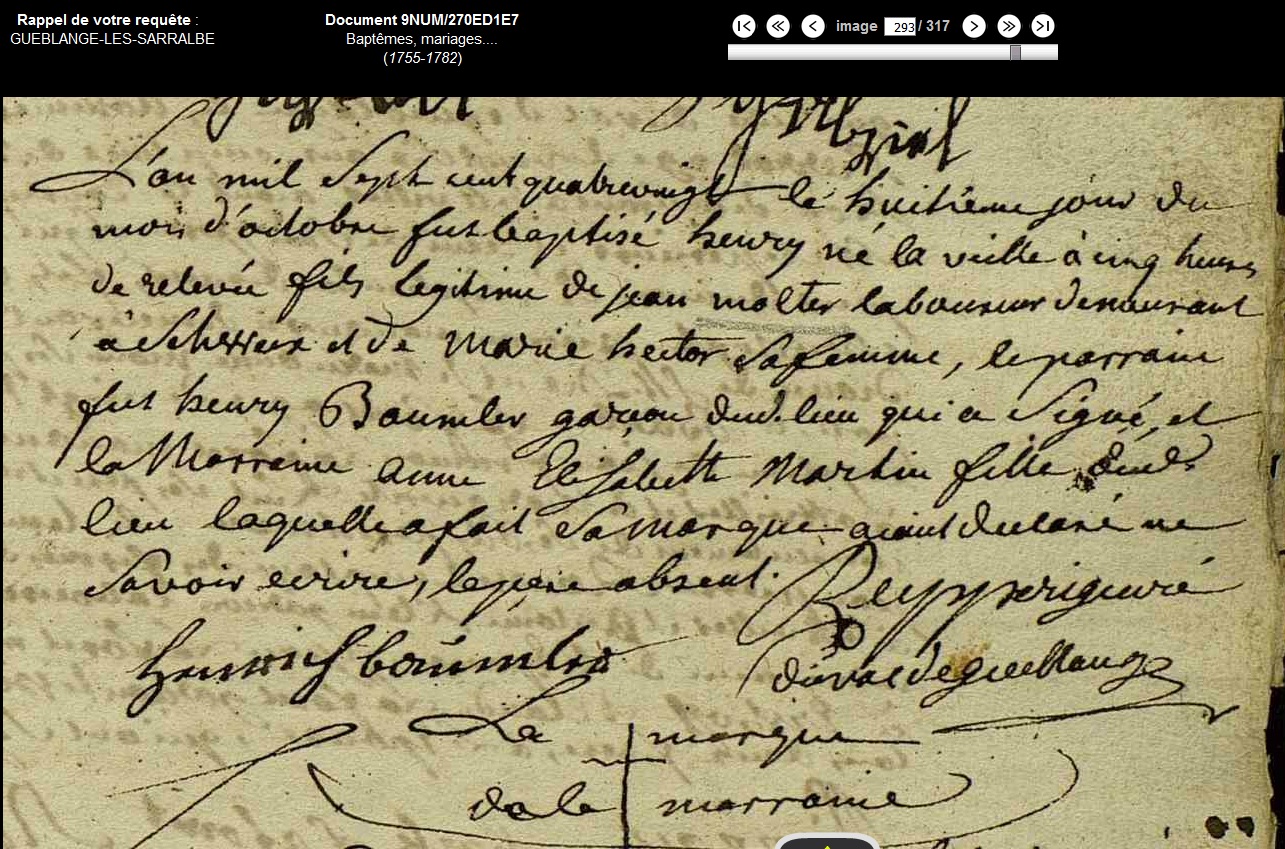 Rappel de votre requête :
GUEBLANGE-LES-SARRALBE
Document 9NUM/270ED1E7
Baptêmes, mariages....
(1755-1782)
image 293 / 317
L'an mil Sept cent quatrevingt le huitième jour du
mois d'octobre fut baptisé henry né la veille à cinq heures
de relevée fils legitime de jean molter laboureur demeurant
à et de Marie hector Sa femme, le parrain
fut henry Baumler garçon dud. lieu qui a Signé, et
la Marraine anne Elisabeth Martin fille dud.
lieu laquelle a fait Sa marque aiant declaré ne
Savoir ecrire, le pere absent.
curé
henrich
de
La marque
de la marraine